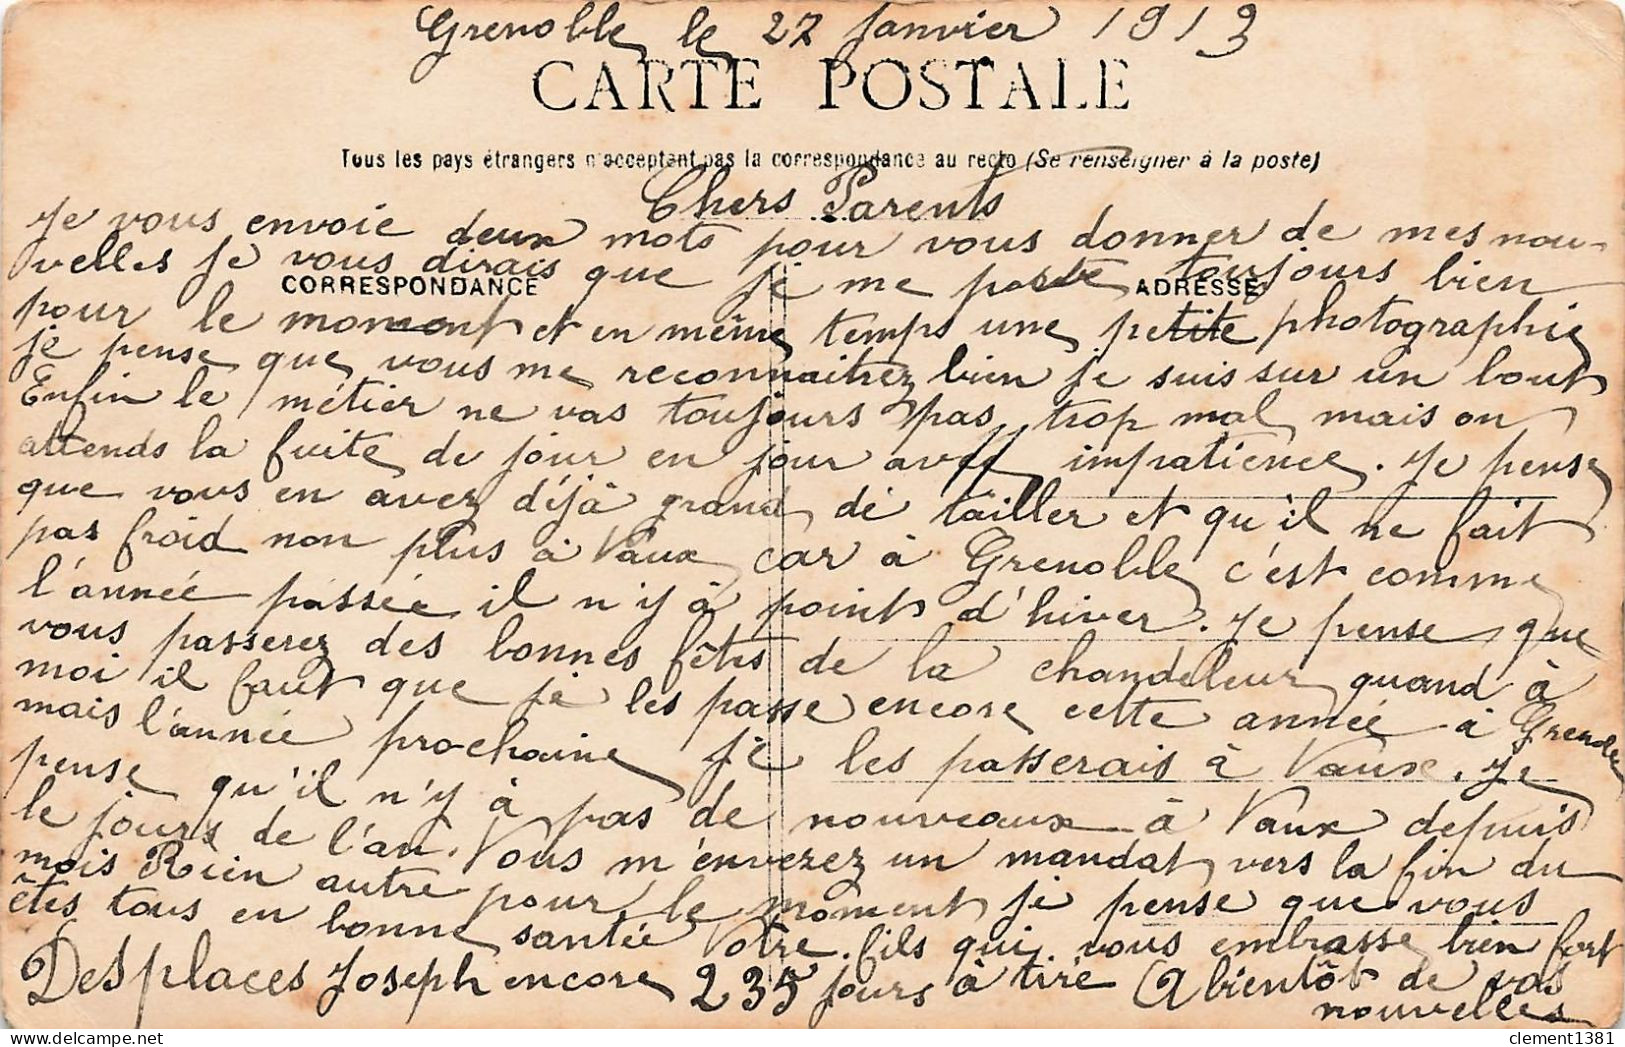 Grenoble le 27 Janvier 1913
CARTE POSTALE
Tous les pays étrangers n'acceptent pas la correspondance au recto (Se renseigner à la poste)
Chers Parents
Je vous envoie deux mots pour vous donner de mes nou-
velles Je vous dirais que je me porte toujours bien
CORRESPONDANCE
ADRESSE
pour le moment et en même temps une petite photographie
je pense que vous me reconnaitrez bien je suis sur un bout
Enfin le métier ne vas toujours pas trop mal mais on
attends la fuite de jour en jour avec impatience. Je pense
que vous en avez déjà grand de tailler et qu'il ne fait
pas froid non plus à Vaux car à Grenoble c'est comme
l'année passée il n'y à point d'hiver. Je pense que
vous passerez des bonnes fêtes de la chandeleur quand à
moi il faut que je les passe encore cette année à Grenoble
mais l'année prochaine je les passerais à Vaux. Je
pense qu'il n'y à pas de nouveaux à Vaux depuis
le jours de l'an. Vous m'enverez un mandat vers la fin du
mois Rien autre pour le moment je pense que vous
êtes tous en bonne santée Votre fils qui vous embrasse bien fort
Desplaces Joseph encore 235 jours à tiré A bientôt de vos
nouvelles
clement1381